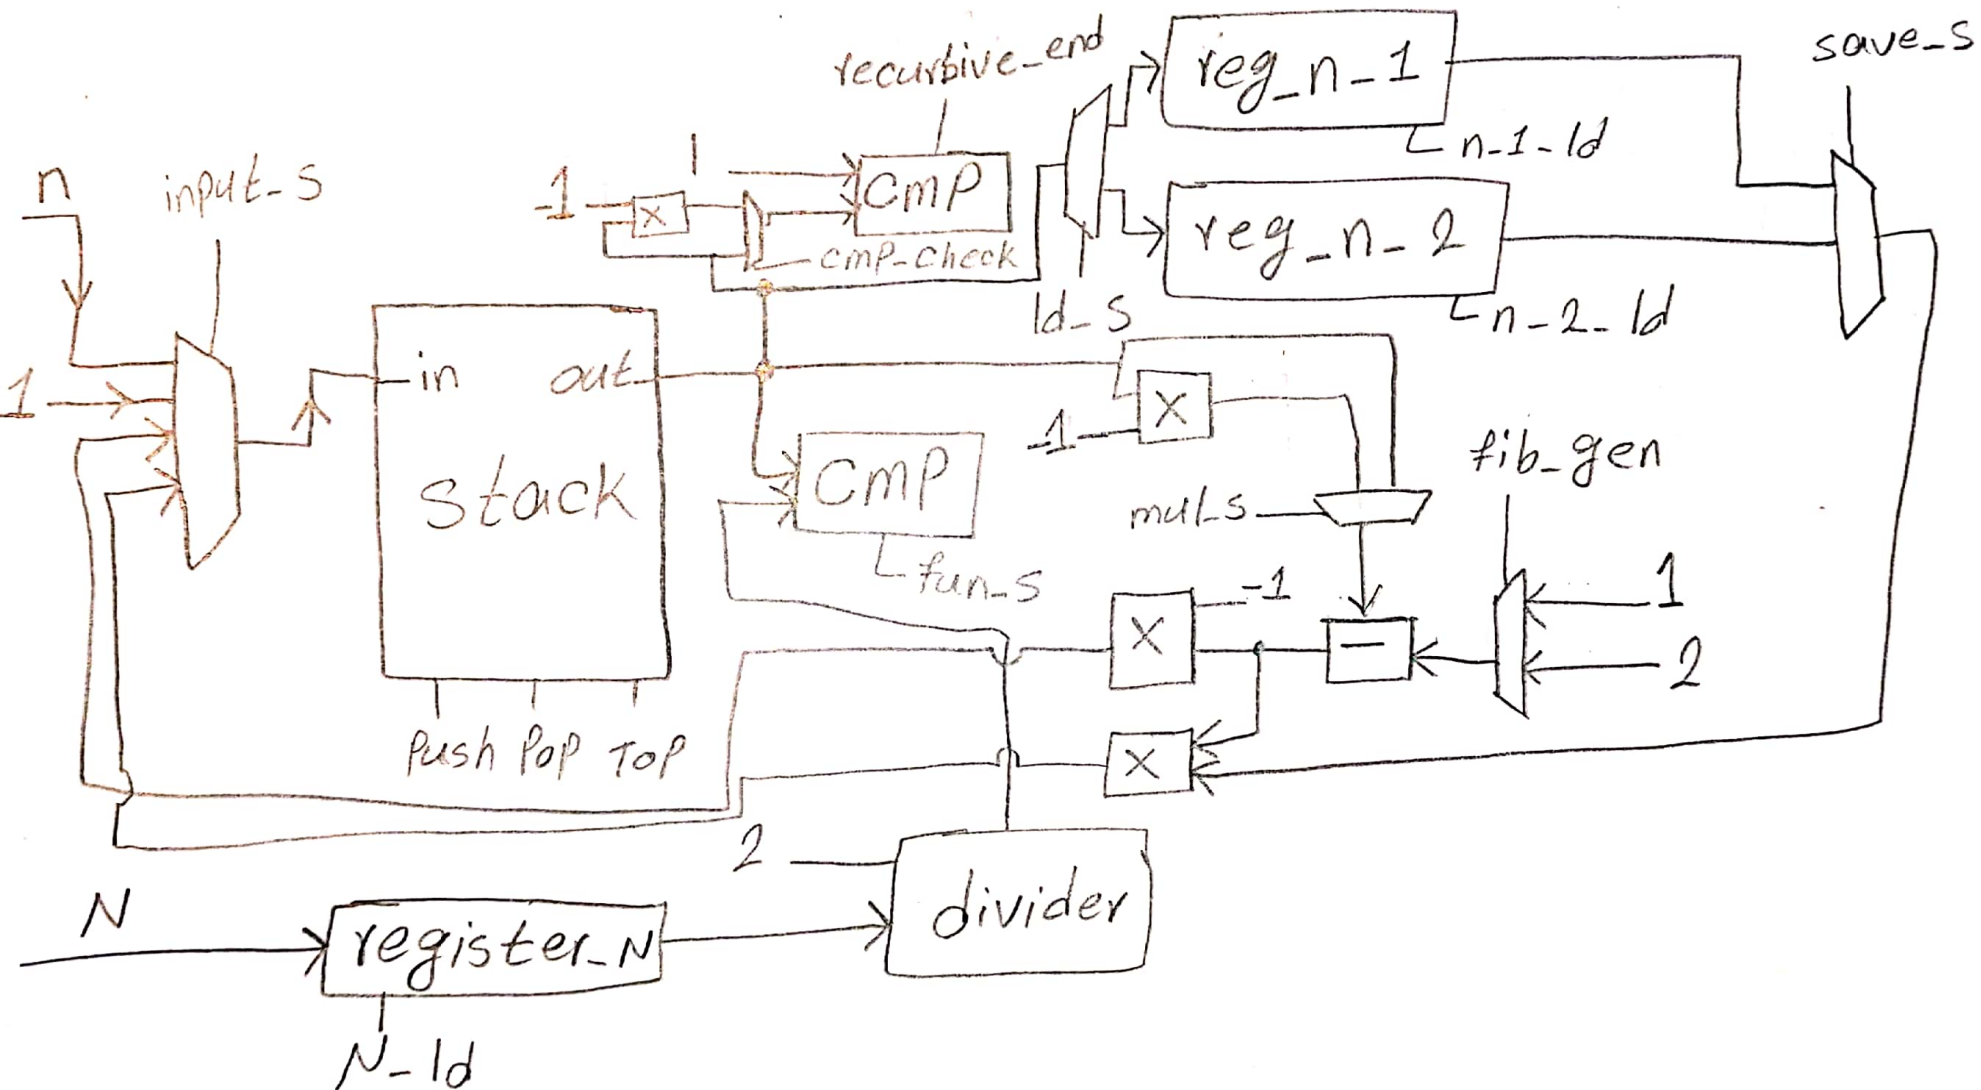 recursive_end
reg_n-1
save_s
n-1-ld
n
input_s
-1
1
x
CMP
cmp-check
reg_n-2
n-2-ld
ld_s
1
in
out
stack
-1
X
CMP
fun_s
mul_s
fib_gen
-1
1
X
−
2
Push
Pop
TOP
X
2
divider
N
register_N
N_ld